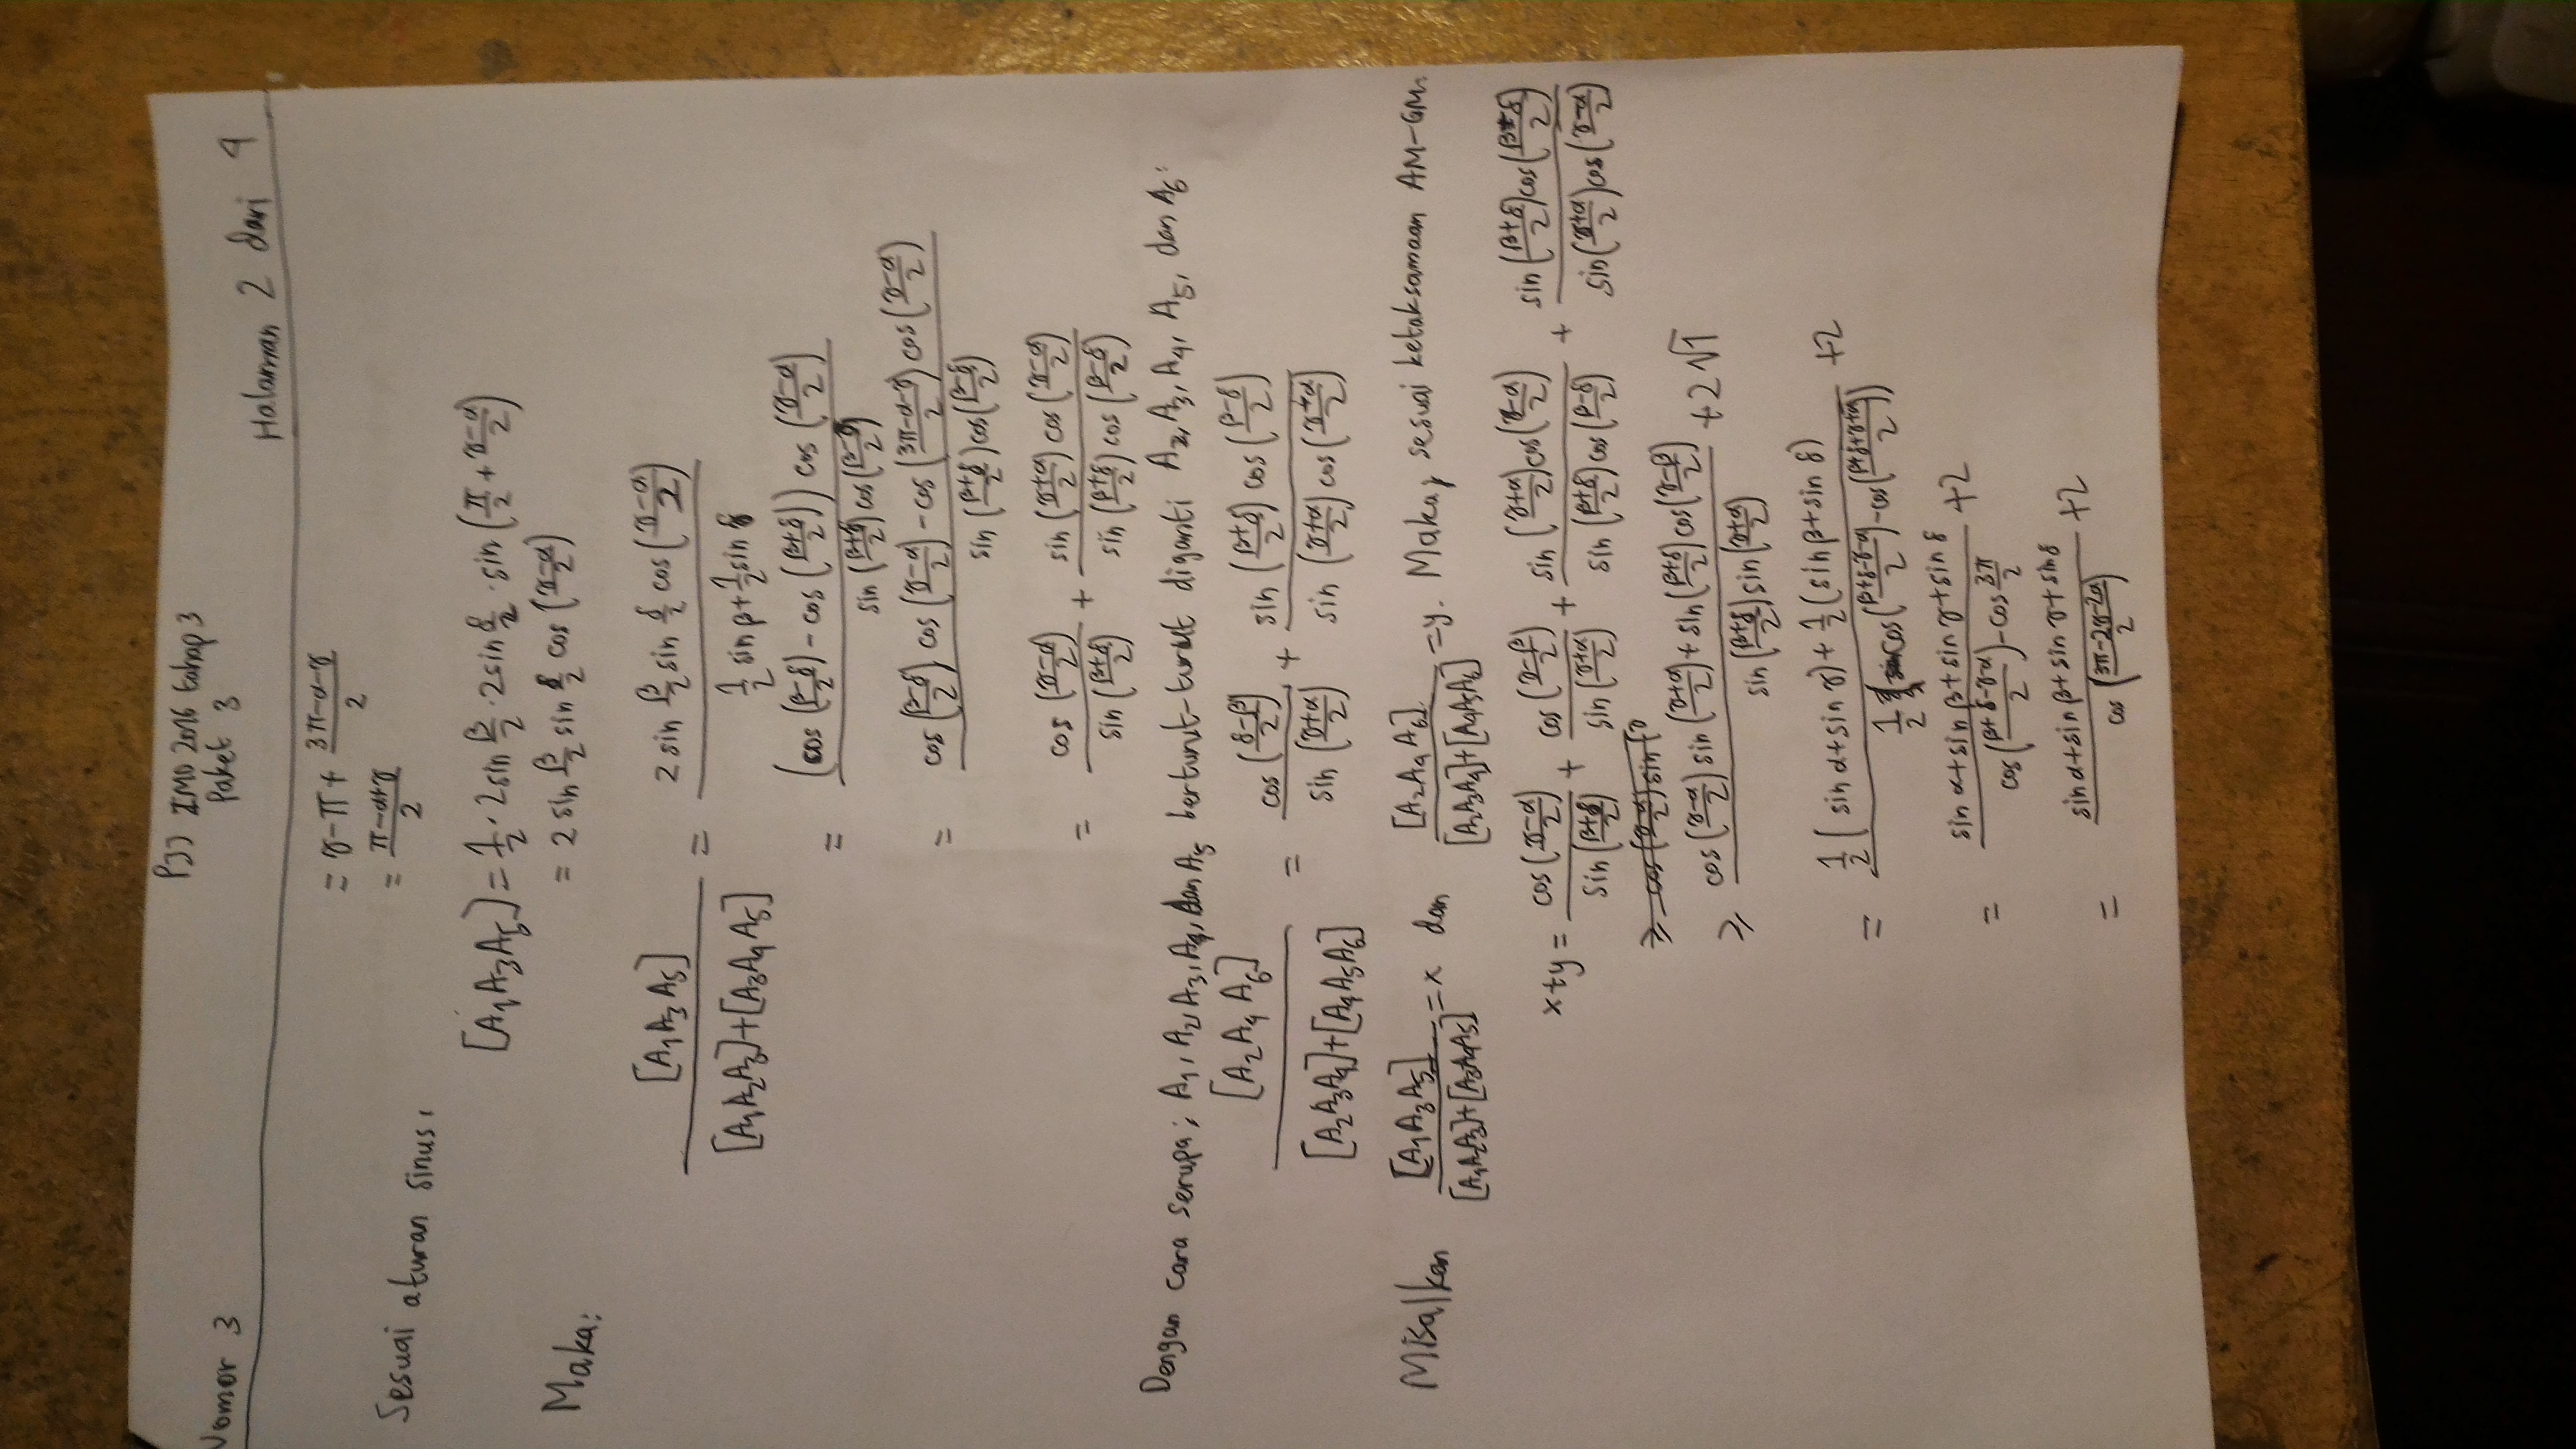 PJJ IMO 2016 tahap 3
Paket 3
Nomor 3
Halaman 2 dari 4
= γ-π + (3π-α-γ)/2
= (π-α+γ)/2
Sesuai aturan sinus,
[A₁A₃A₅] = 1/2 · 2 sin β/2 · 2 sin δ/2 · sin (π/2 + (γ-α)/2)
= 2 sin β/2 sin δ/2 cos ((γ-α)/2)
Maka:
[A₁A₃A₅] / ([A₁A₂A₃]+[A₃A₄A₅]) = (2 sin β/2 sin δ/2 cos ((γ-α)/2)) / (1/2 sin β + 1/2 sin δ)
= ((cos ((β-δ)/2) - cos ((β+δ)/2)) cos ((γ-α)/2)) / (sin ((β+δ)/2) cos ((β-δ)/2))
= (cos ((β-δ)/2) cos ((γ-α)/2) - cos ((3π-α-γ)/2) cos ((γ-α)/2)) / (sin ((β+δ)/2) cos ((β-δ)/2))
= cos ((γ-α)/2) / sin ((β+δ)/2) + (sin ((γ+α)/2) cos ((γ-α)/2)) / (sin ((β+δ)/2) cos ((β-δ)/2))
Dengan cara serupa; A₁, A₂, A₃, A₄, dan A₅ berturut-turut diganti A₂, A₃, A₄, A₅, dan A₆:
[A₂A₄A₆] / ([A₂A₃A₄]+[A₄A₅A₆]) = cos ((δ-β)/2) / sin ((γ+α)/2) + (sin ((β+δ)/2) cos ((β-δ)/2)) / (sin ((γ+α)/2) cos ((γ+α)/2))
Misalkan [A₁A₃A₅] / ([A₁A₂A₃]+[A₃A₄A₅]) = x dan [A₂A₄A₆] / ([A₂A₃A₄]+[A₄A₅A₆]) = y. Maka, sesuai ketaksamaan AM-GM:
x+y = cos ((γ-α)/2) / sin ((β+δ)/2) + cos ((γ-β)/2) / sin ((γ+α)/2) + (sin ((γ+α)/2) cos ((γ-α)/2)) / (sin ((β+δ)/2) cos ((β-δ)/2)) + (sin ((β+δ)/2) cos ((β-δ)/2)) / (sin ((γ+α)/2) cos ((γ-α)/2))
≥ (cos ((γ-α)/2) sin ((γ+α)/2) + sin ((β+δ)/2) cos ((γ-β)/2)) / (sin ((β+δ)/2) sin ((γ+α)/2)) + 2√1
= (1/2 (sin α + sin γ) + 1/2 (sin β + sin δ)) / (1/2 (cos ((β+δ-γ-α)/2) - cos ((β+δ+γ+α)/2))) + 2
= (sin α + sin β + sin γ + sin δ) / (cos ((β+δ-γ-α)/2) - cos 3π/2) + 2
= (sin α + sin β + sin γ + sin δ) / cos ((3π-2γ-2α)/2) + 2